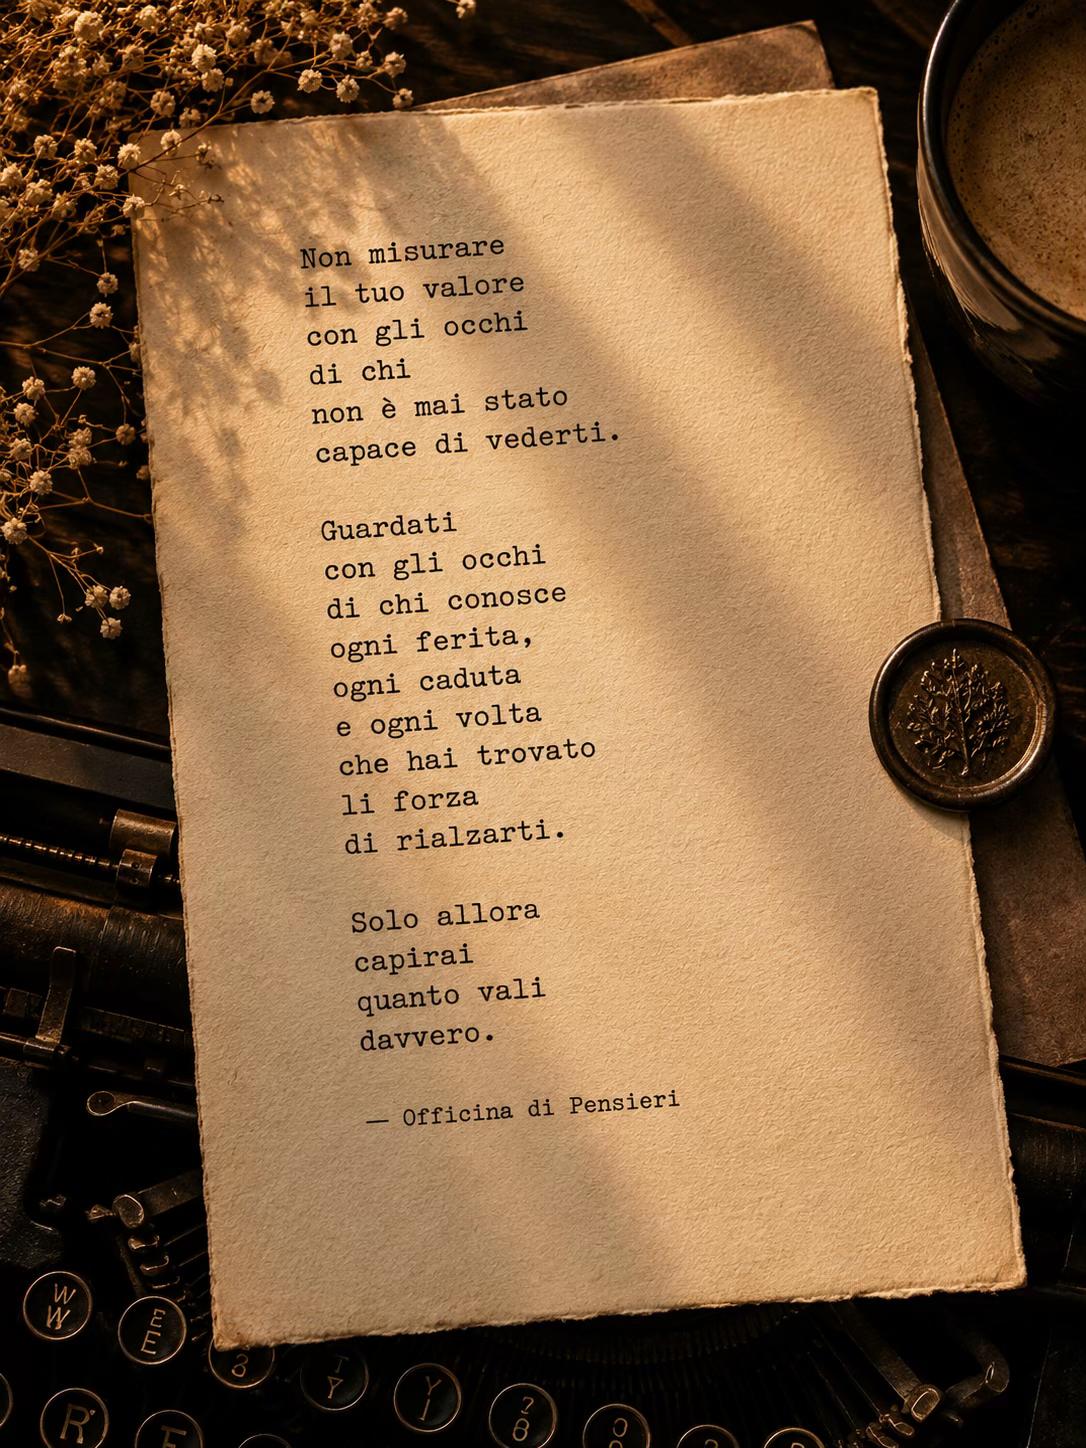 Non misurare
il tuo valore
con gli occhi
di chi
non è mai stato
capace di vederti.
Guardati
con gli occhi
di chi conosce
ogni ferita,
ogni caduta
e ogni volta
che hai trovato
li forza
di rialzarti.
Solo allora
capirai
quanto vali
davvero.
— Officina di Pensieri
W
W
E
E
3
T
Y
Y
I
?
8
R